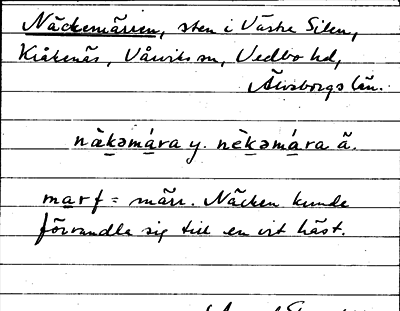 Näckemärren, sten i Västra Silen,
Kråkenäs, Vårviks sn, Vedbo hd,
Älvsborgs län.
näkəmára y. nèkəmára ä.
mar f = märr. Näcken kunde
förvandla sig till en vit häst.